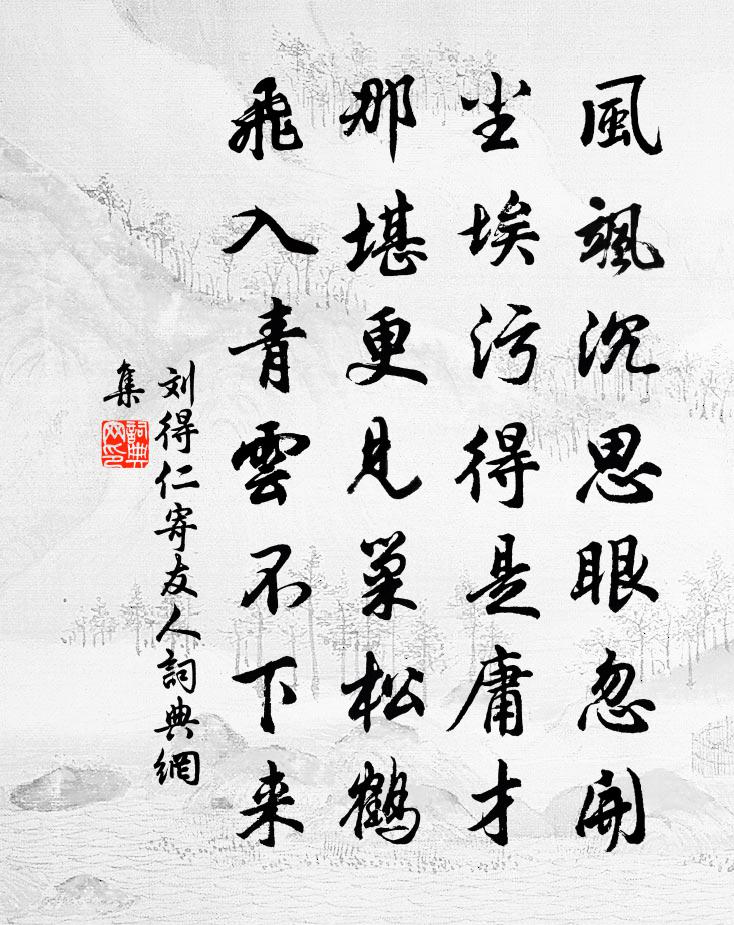 風飒沉思眼忽開
尘埃污得是庸才
那堪更見巢松鶴
飛入青雲不下来
刘得仁寄友人詞典網
集
詞典
网印